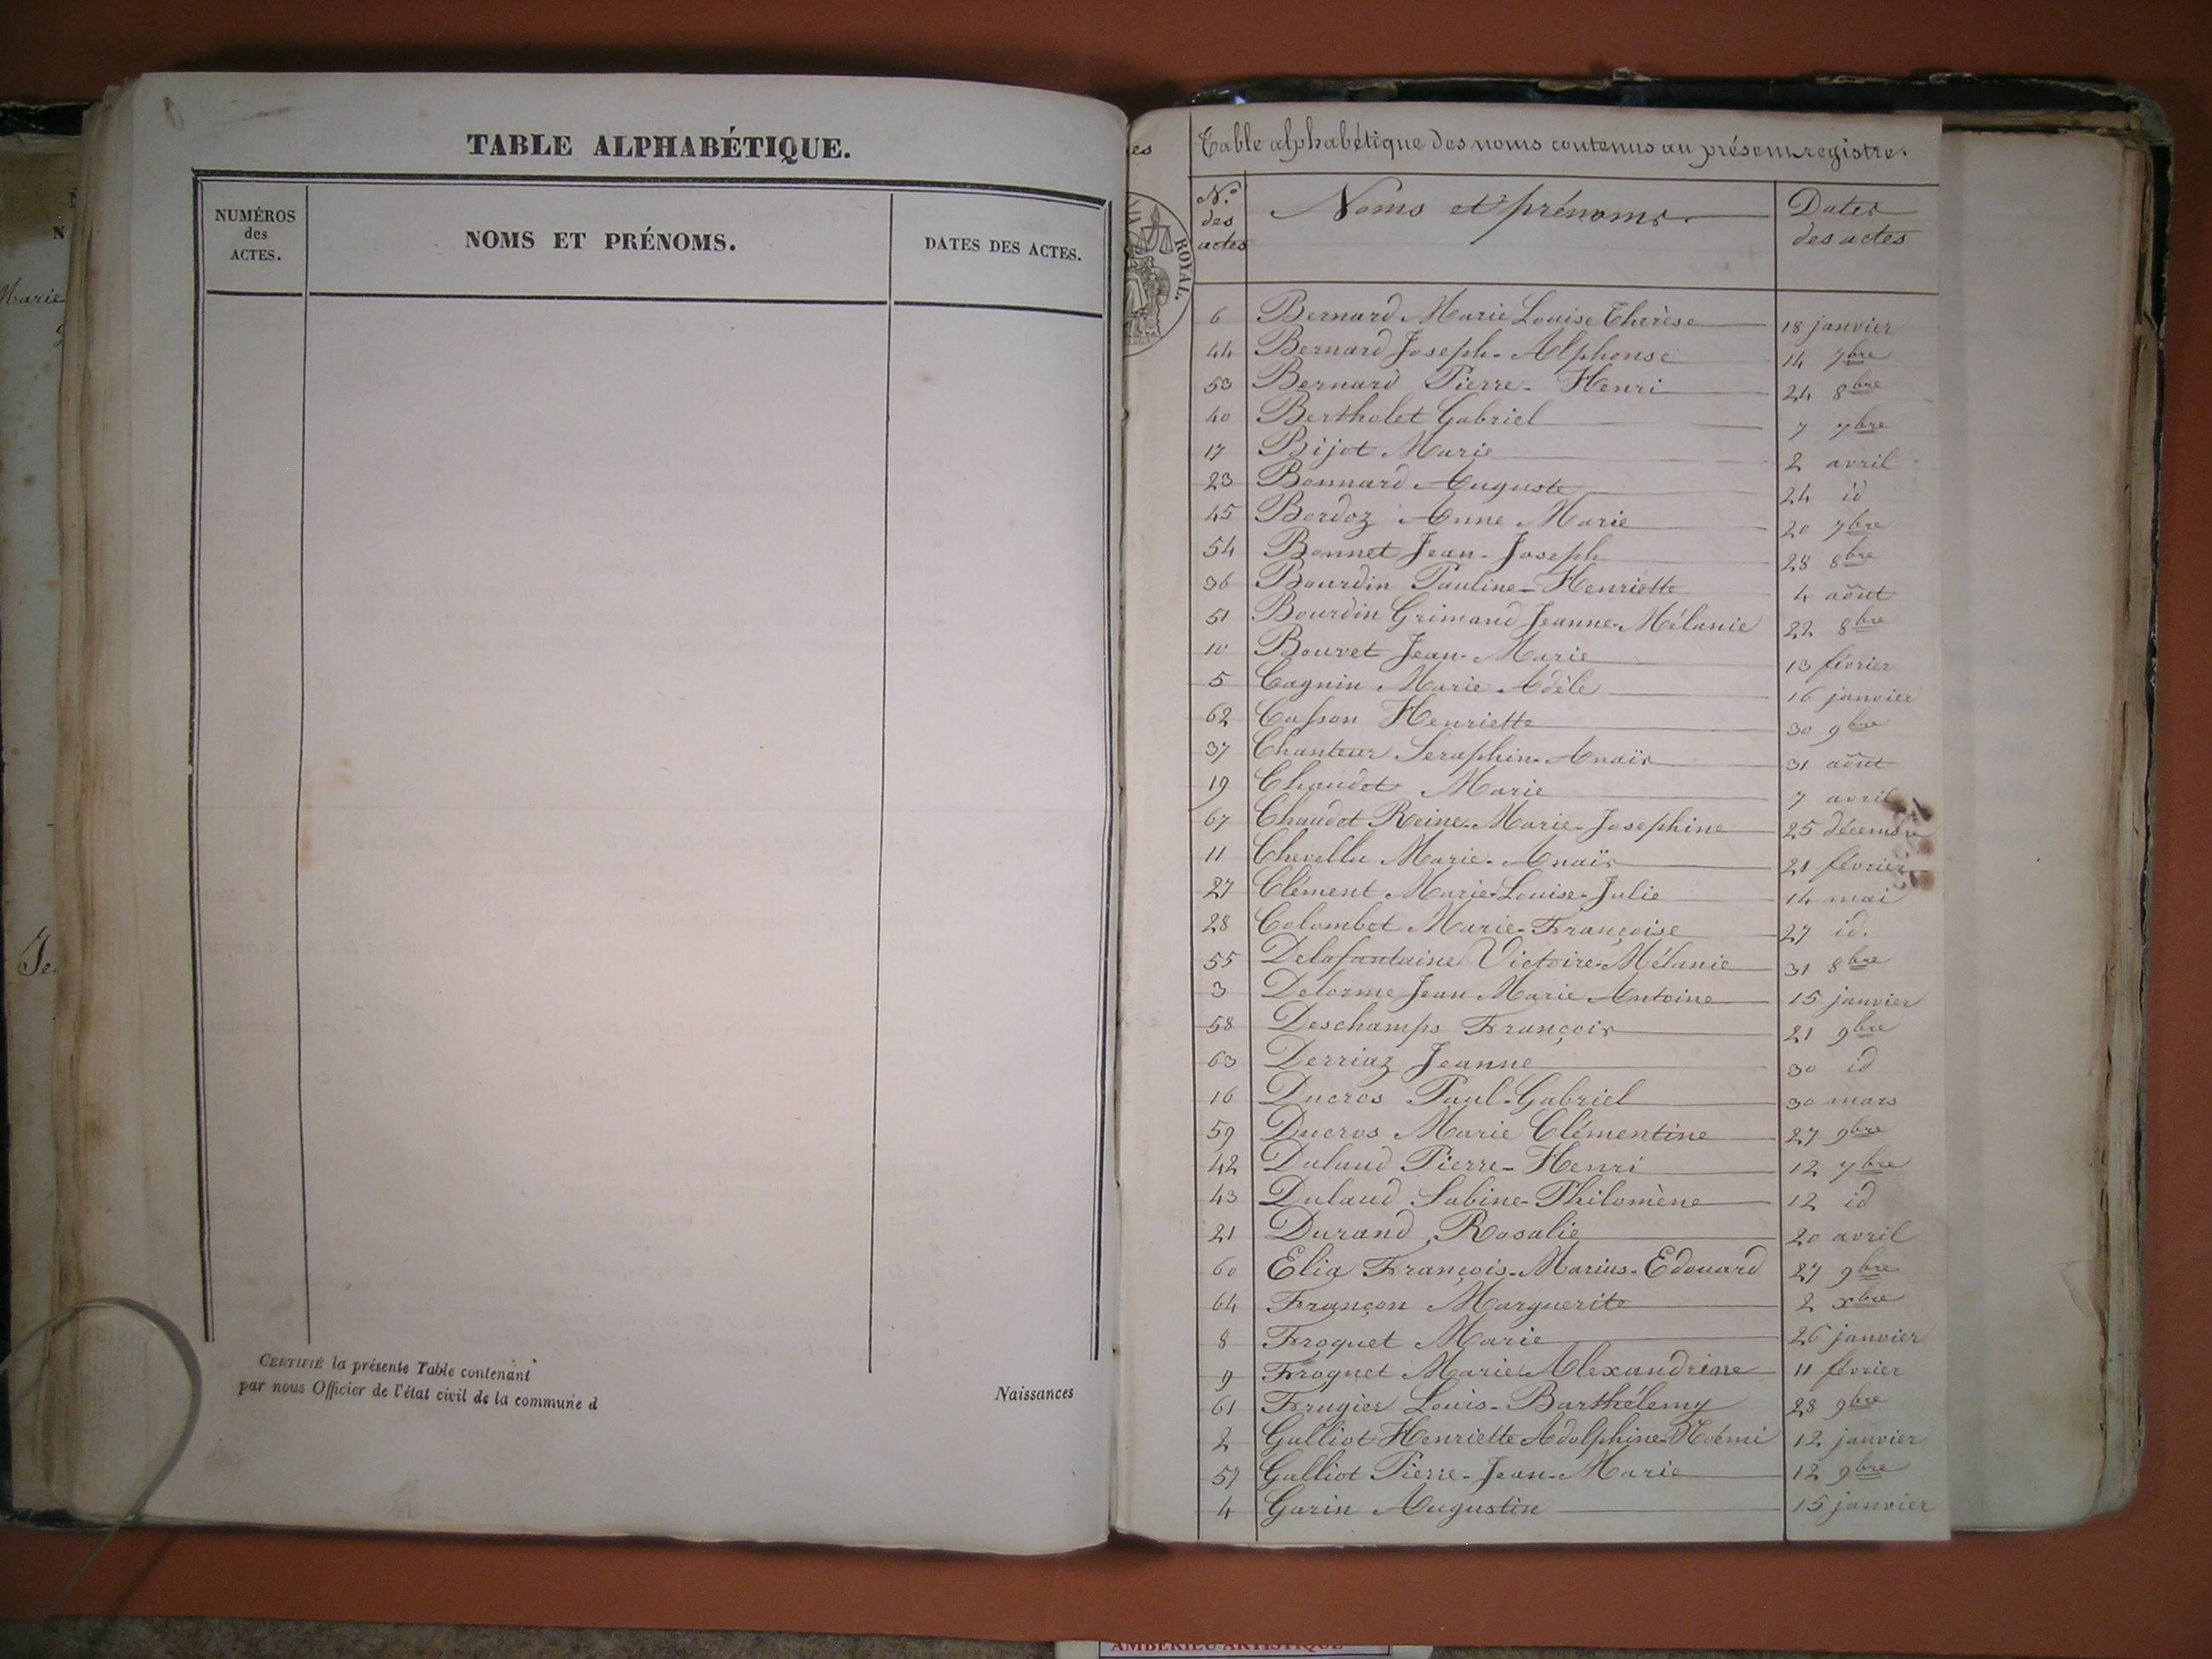 TABLE ALPHABÉTIQUE.
NUMÉROS
des
ACTES.
NOMS ET PRÉNOMS.
DATES DES ACTES.
CERTIFIÉ la présente Table contenant
par nous Officier de l'état civil de la commune d
Naissances
Marie
es
ROYAL.
Table alphabétique des noms contenus au présent registre.
N.º
des
actes
Noms et prénoms.
Dates
des actes
6 Bernard Marie Louise Therèse 18 janvier
44 Bernard Joseph-Alphonse 14 7bre
53 Bernard Pierre-Henri 24 8bre
40 Bertholet Gabriel 7 7bre
17 Bijot Marie 2 avril
23 Bonnard Auguste 24 id
45 Bordoz Anne Marie 20 7bre
54 Bonnet Jean-Joseph 28 8bre
36 Bourdin Pauline-Henriette 4 août
51 Bourdin Grimand Jeanne-Mélanie 22 8bre
10 Bouvet Jean-Marie 13 février
5 Cagnin Marie Adèle 16 janvier
62 Casson Henriette 30 9bre
37 Chanteur Seraphin-Anaïs 31 août
19 Chaudet Marie 7 avril
67 Chaudet Reine-Marie-Josephine 25 décembre
11 Chevellu Marie-Anaïs 21 février
27 Clément Marie-Louise-Julie 14 mai
28 Colombet Marie-Françoise 27 id.
55 Delafontaine Victoire-Mélanie 31 8bre
3 Delorme Jean Marie Antoine 15 janvier
58 Deschamps François 21 9bre
63 Derriaz Jeanne 30 id
16 Ducros Paul-Gabriel 30 mars
59 Ducros Marie Clémentine 27 9bre
42 Dulaud Pierre-Henri 12 7bre
43 Dulaud Sabine-Philomène 12 id
21 Durand, Rosalie 20 avril
60 Elia François-Marius-Edouard 27 9bre
64 Françon Marguerite 2 xbre
8 Froquet Marie 26 janvier
9 Froquet Marie Alexandrine 11 février
61 Frugier Louis-Barthélemy 28 9bre
2 Galliot Henriette Adolphine-Noémi 12 janvier
57 Galliot Pierre-Jean-Marie 12 9bre
4 Garin Augustin 15 janvier
AMBERIEU ARTISTIQUE